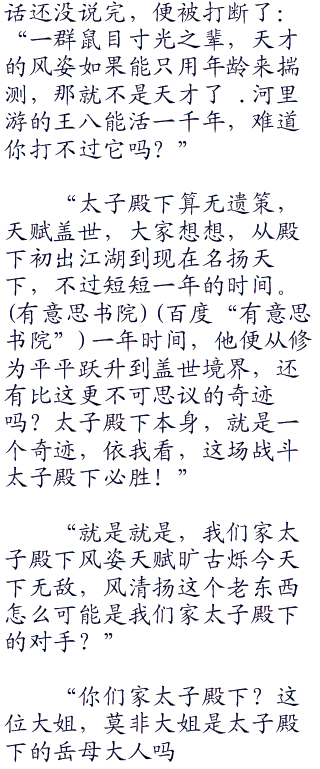 话还没说完，便被打断了：
“一群鼠目寸光之辈，天才
的风姿如果能只用年龄来揣
测，那就不是天才了．河里
游的王八能活一千年，难道
你打不过它吗？”
“太子殿下算无遗策，
天赋盖世，大家想想，从殿
下初出江湖到现在名扬天
下，不过短短一年的时间。
(有意思书院)(百度“有意思
书院”)一年时间，他便从修
为平平跃升到盖世境界，还
有比这更不可思议的奇迹
吗？太子殿下本身，就是一
个奇迹，依我看，这场战斗
太子殿下必胜！”
“就是就是，我们家太
子殿下风姿天赋旷古烁今天
下无敌，风清扬这个老东西
怎么可能是我们家太子殿下
的对手？”
“你们家太子殿下？这
位大姐，莫非大姐是太子殿
下的岳母大人吗